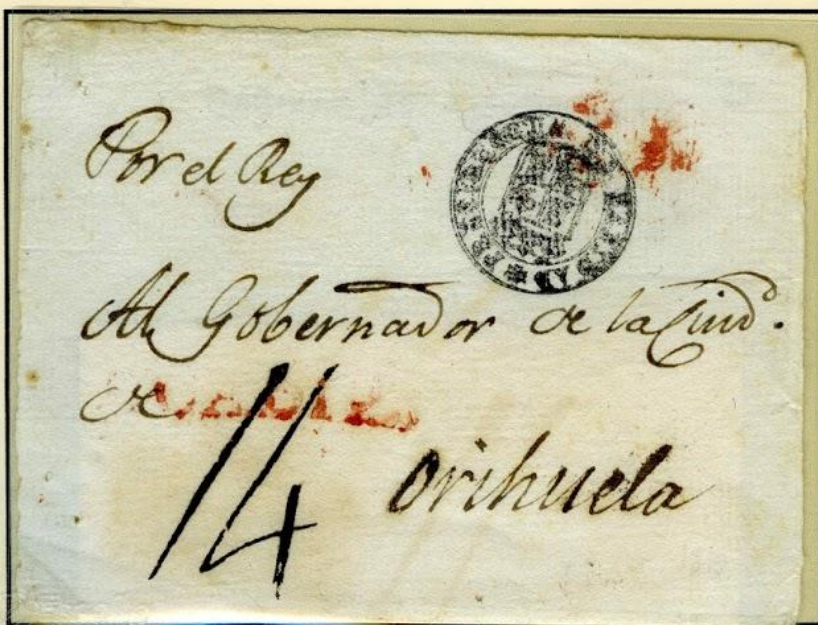 Por el Rey
Al Gobernador de la Ciud.
de
14 Orihuela